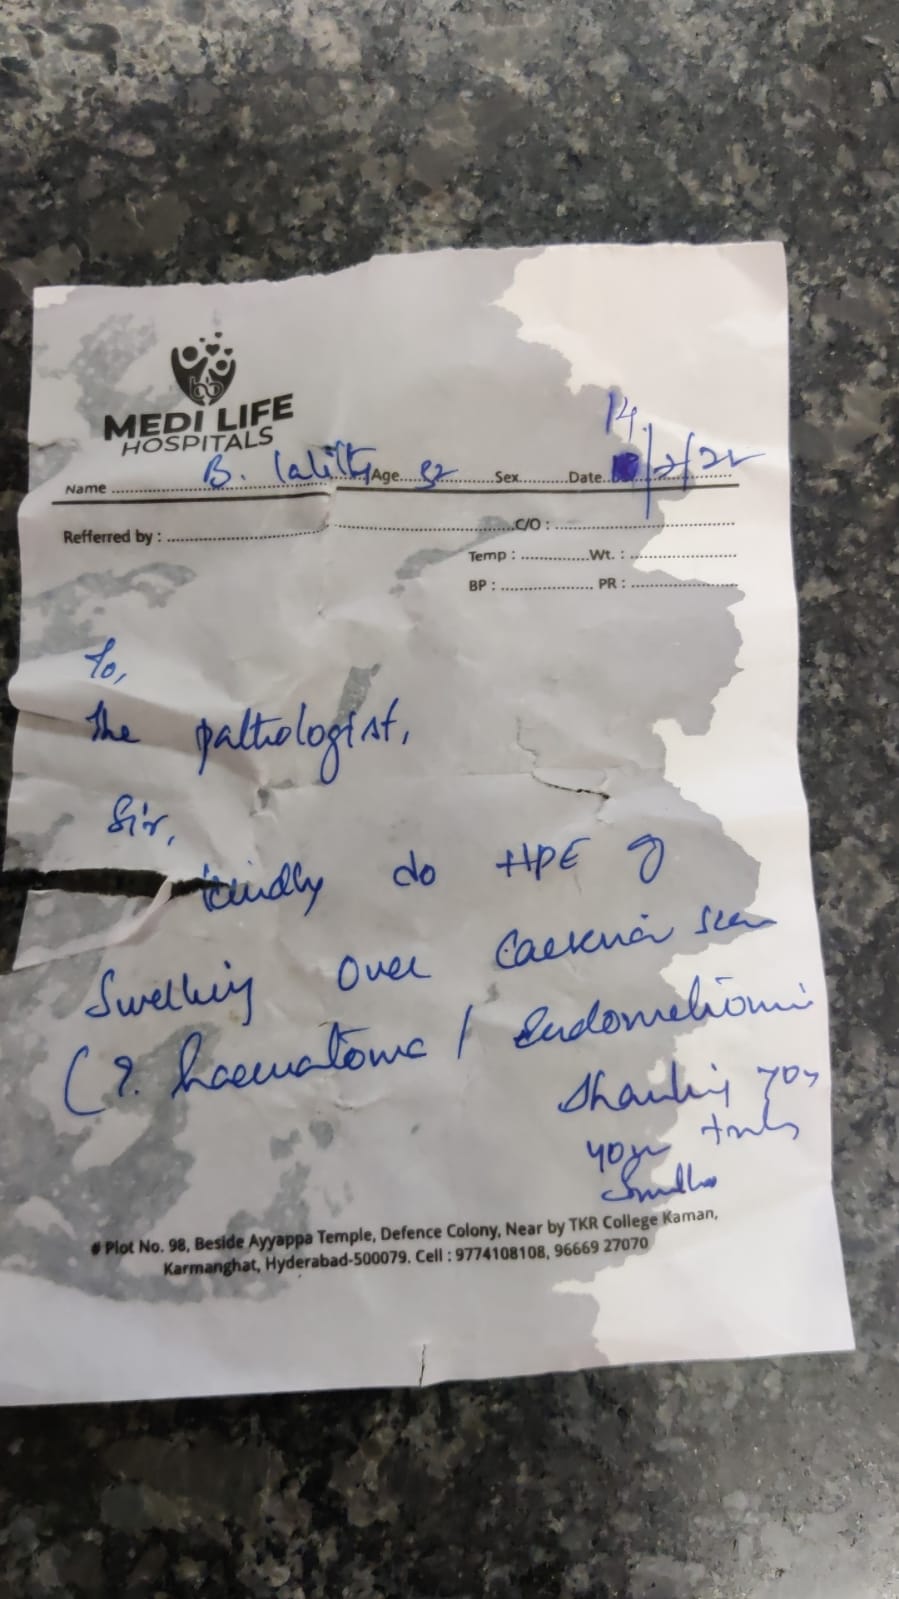 MEDI LIFE
HOSPITALS
Name B. Lalitha Age 32 Sex Date 14/2/22
Refferred by : C/O :
Temp : Wt. :
BP : PR :
To,
The pathologist,
Sir,
Kindly do HPE of
Swelling over Caesarian scar
(? haematoma / Endometrioma
Thanking you
yours truly
# Plot No. 98, Beside Ayyappa Temple, Defence Colony, Near by TKR College Kaman,
Karmanghat, Hyderabad-500079. Cell : 9774108108, 96669 27070